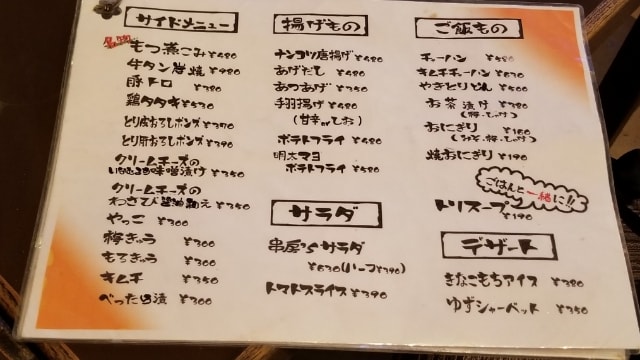 サイドメニュー
名物
もつ煮こみ ¥480
牛タン炭焼 ¥980
豚トロ ¥380
鶏タタキ ¥530
とり皮おろしポンズ ¥370
とり肝おろしポンズ ¥390
クリームチーズの
いぶりがっこ味噌漬け ¥350
クリームチーズの
わさび醤油和え ¥350
やっこ ¥300
梅きゅう ¥300
もろきゅう ¥300
キムチ ¥350
べったら漬 ¥300
揚げもの
ナンコツ唐揚げ ¥480
あげだし ¥480
あつあげ ¥350
手羽揚げ ¥480
(甘辛orしお)
ポテトフライ ¥480
明太マヨ
ポテトフライ ¥580
サラダ
串房's サラダ
¥630(ハーフ¥390)
トマトスライス ¥390
ご飯もの
チャーハン ¥580
キムチチャーハン ¥630
やきとり丼 ¥500
お茶漬け ¥380
(梅・しゃけ)
おにぎり ¥160
(おかか・梅・しゃけ)
焼おにぎり ¥190
ごはんと一緒に!!
トリスープ ¥190
デザート
きなこもちアイス ¥380
ゆずシャーベット ¥350